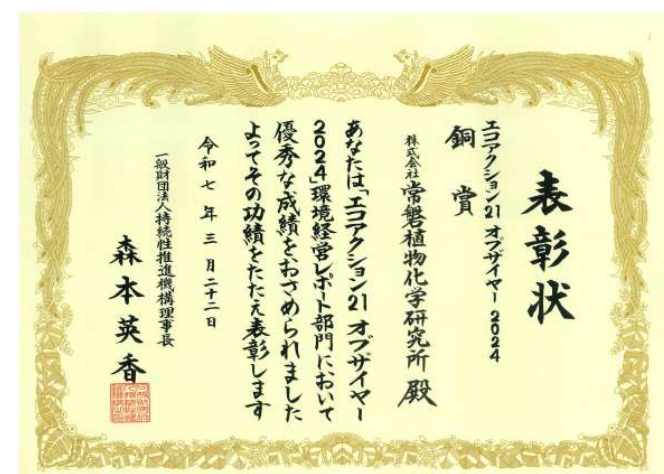 表彰状
エコアクション21 オブザイヤー 2024
銅賞
株式会社常磐植物化学研究所 殿
あなたは「エコアクション21 オブザイヤー
2024」環境経営レポート部門において
優秀な成績をおさめられました
よってその功績をたたえ表彰します
令和七年三月二十二日
一般財団法人持続性推進機構理事長
森本英香